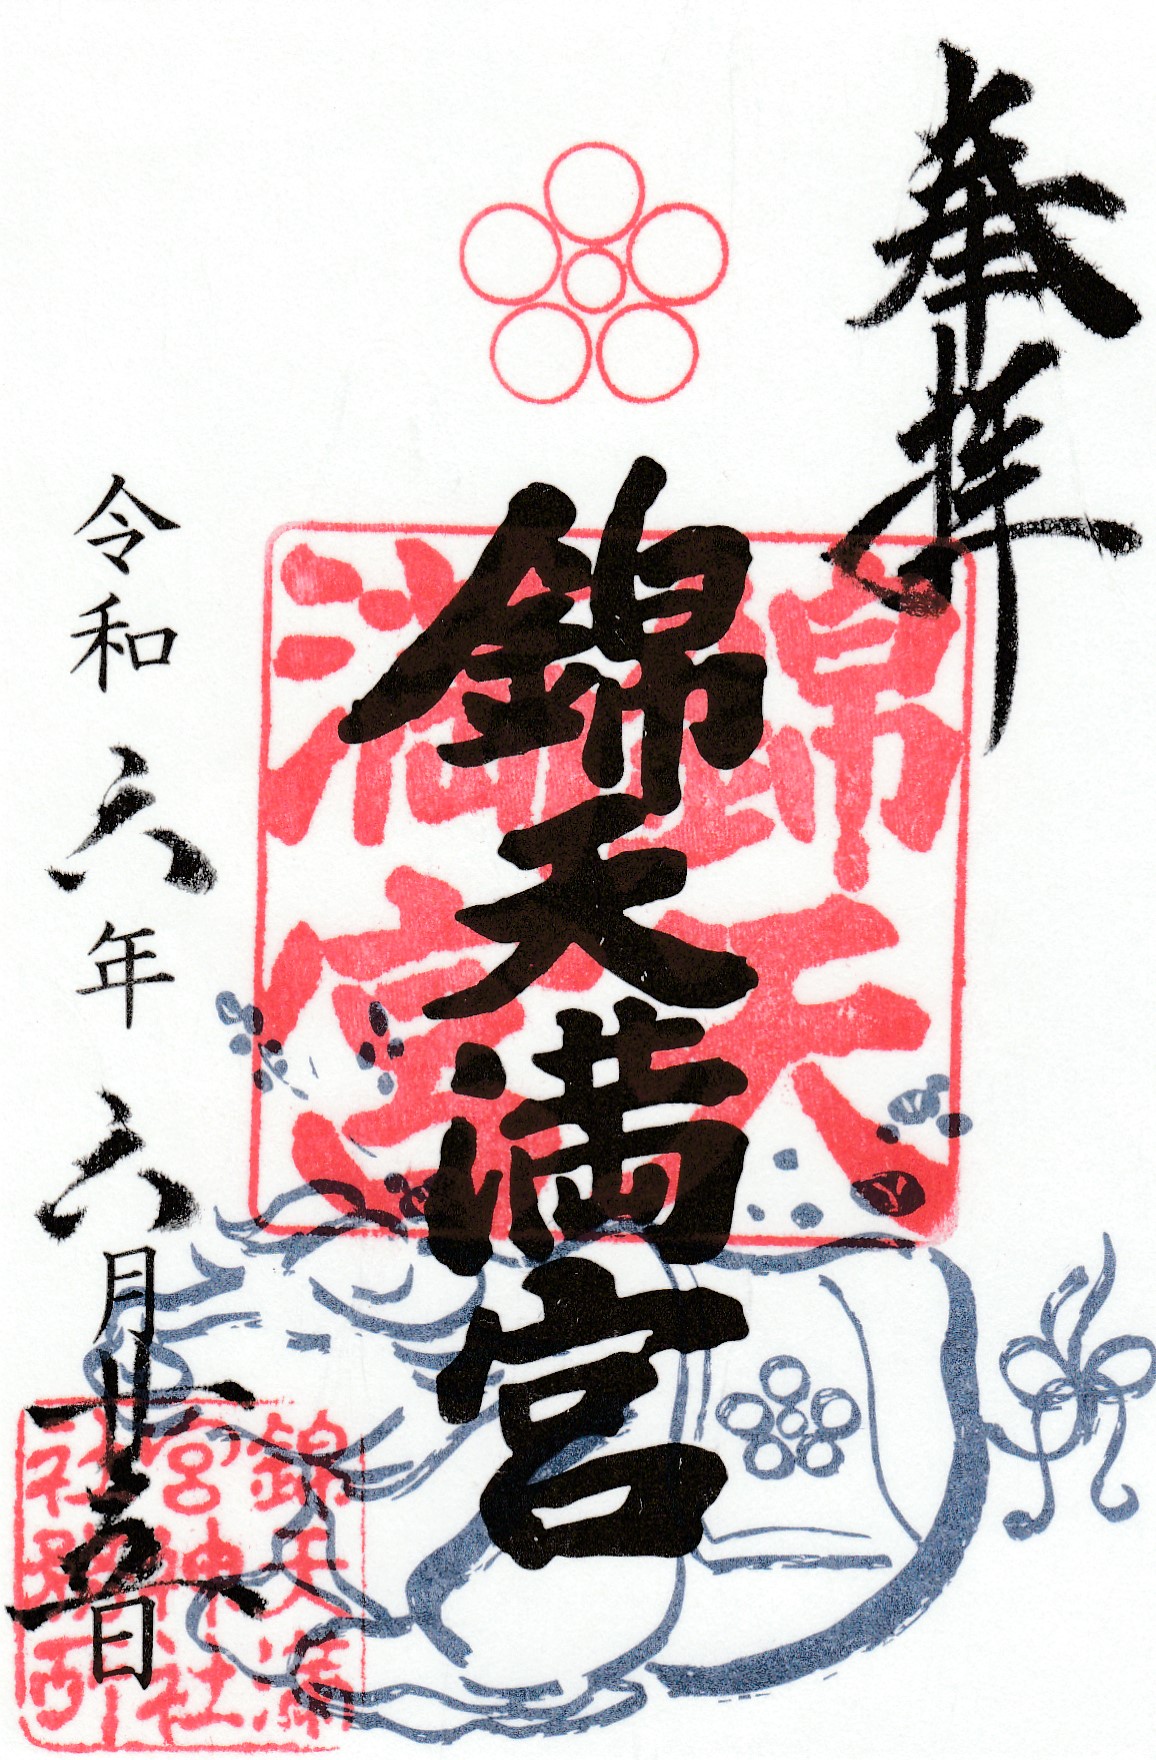 奉拝
錦天満宮
錦天
満宮
令和六年六月廿五日
錦天満
宮神社
社務所印